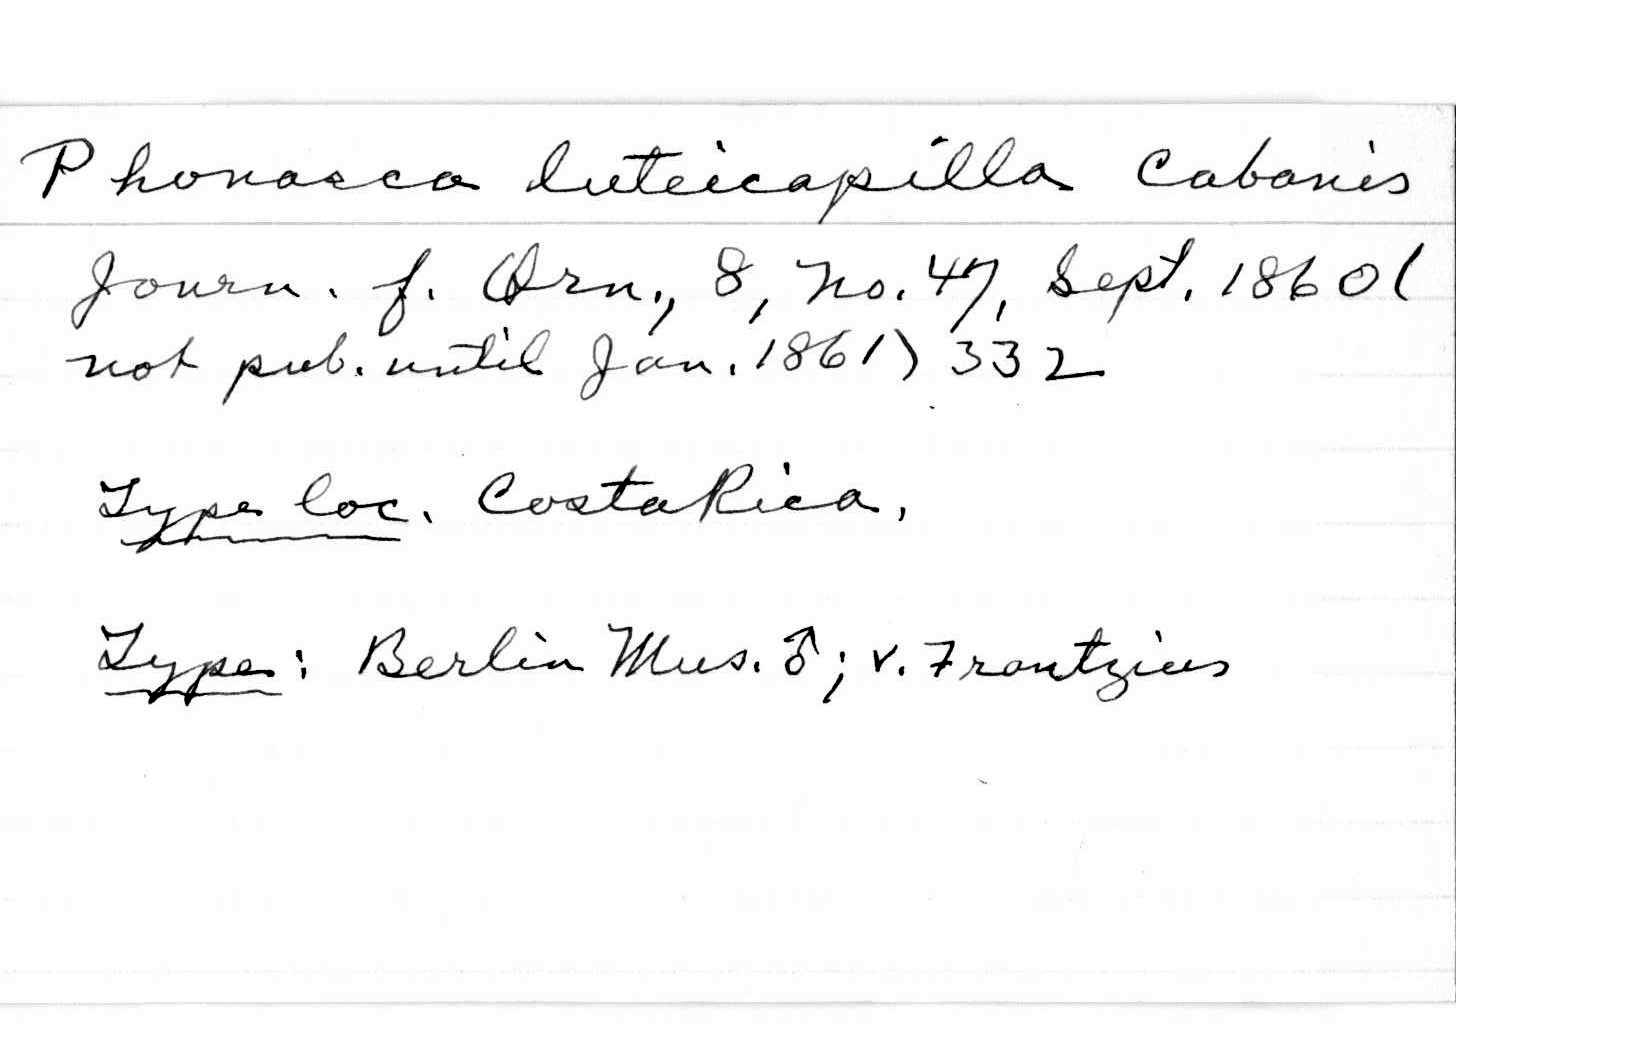 Phonasca luteicapilla Cabanis
Journ. f. Orn., 8, No. 47, Sept. 1860 (
not pub. until Jan. 1861) 332
Type loc. Costa Rica.
Type: Berlin Mus. ♂; v. Frantzius